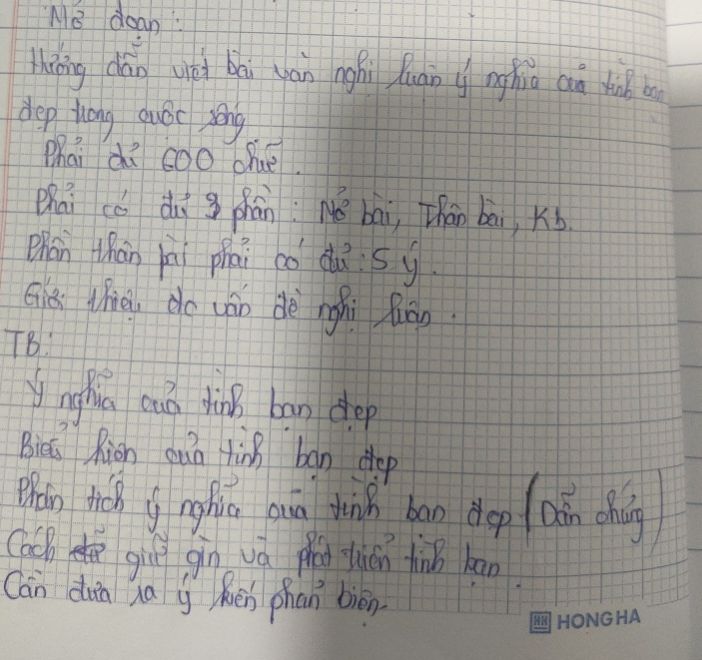 Mở đoạn:
Hướng dẫn viết bài văn nghị luận ý nghĩa của tình bạn
đẹp trong cuộc sống
Phải đủ 600 chữ.
Phải có đủ 3 phần: Mở bài, Thân bài, Kb.
Phần thân bài phải có đủ: 5 ý.
Giới thiệu đc vấn đề nghị luận.
TB:
Ý nghĩa của tình bạn đẹp
Biểu hiện của tình bạn đẹp
Phân tích ý nghĩa của tình bạn đẹp (Dẫn chứng)
Cách để giữ gìn và phát triển tình bạn.
Cần đưa ra ý kiến phản biện.
HONG HA